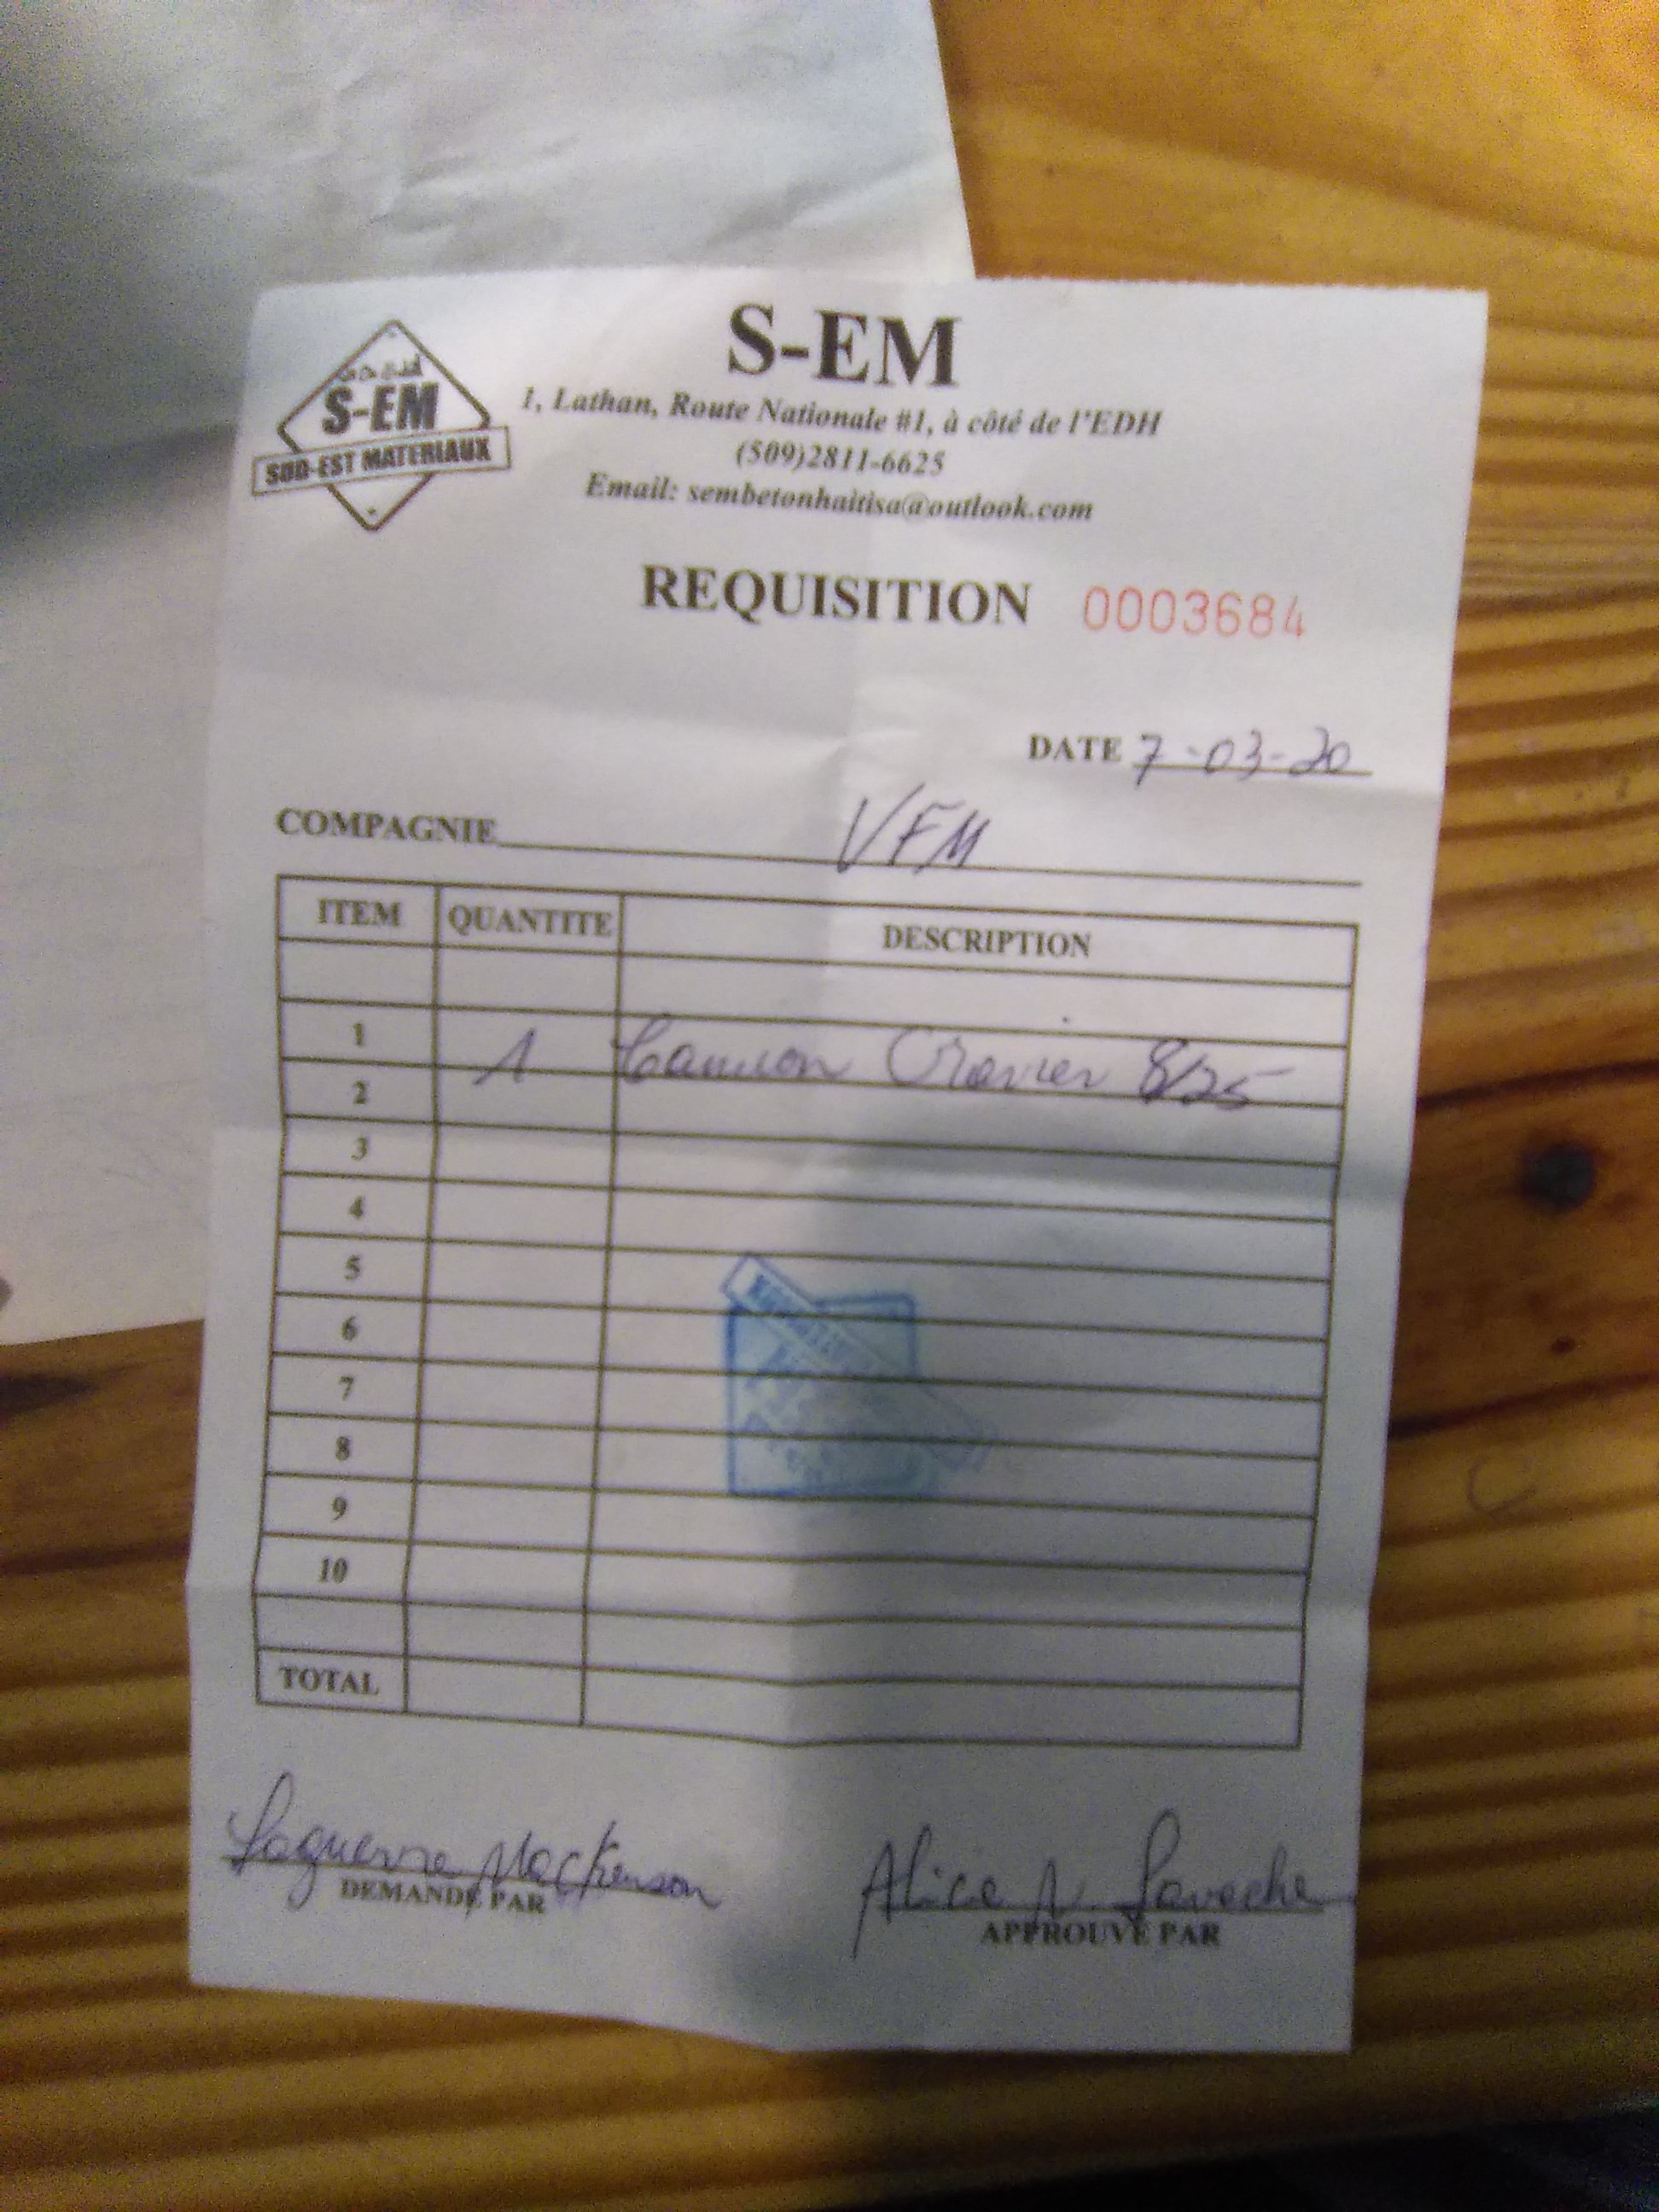 S-EM
SUD-EST MATERIAUX
S-EM
1, Lathan, Route Nationale #1, à côté de l'EDH
(509)2811-6625
Email: sembetonhaitisa@outlook.com
REQUISITION 0003684
DATE 7-03-20
COMPAGNIE VFM
ITEM QUANTITE DESCRIPTION
1 1 Camion Gravier 8/25
2
3
4
5
6
7
8
9
10
TOTAL
Laguerre Mackenson
DEMANDÉ PAR
Alice N. Laroche
APPROUVÉ PAR